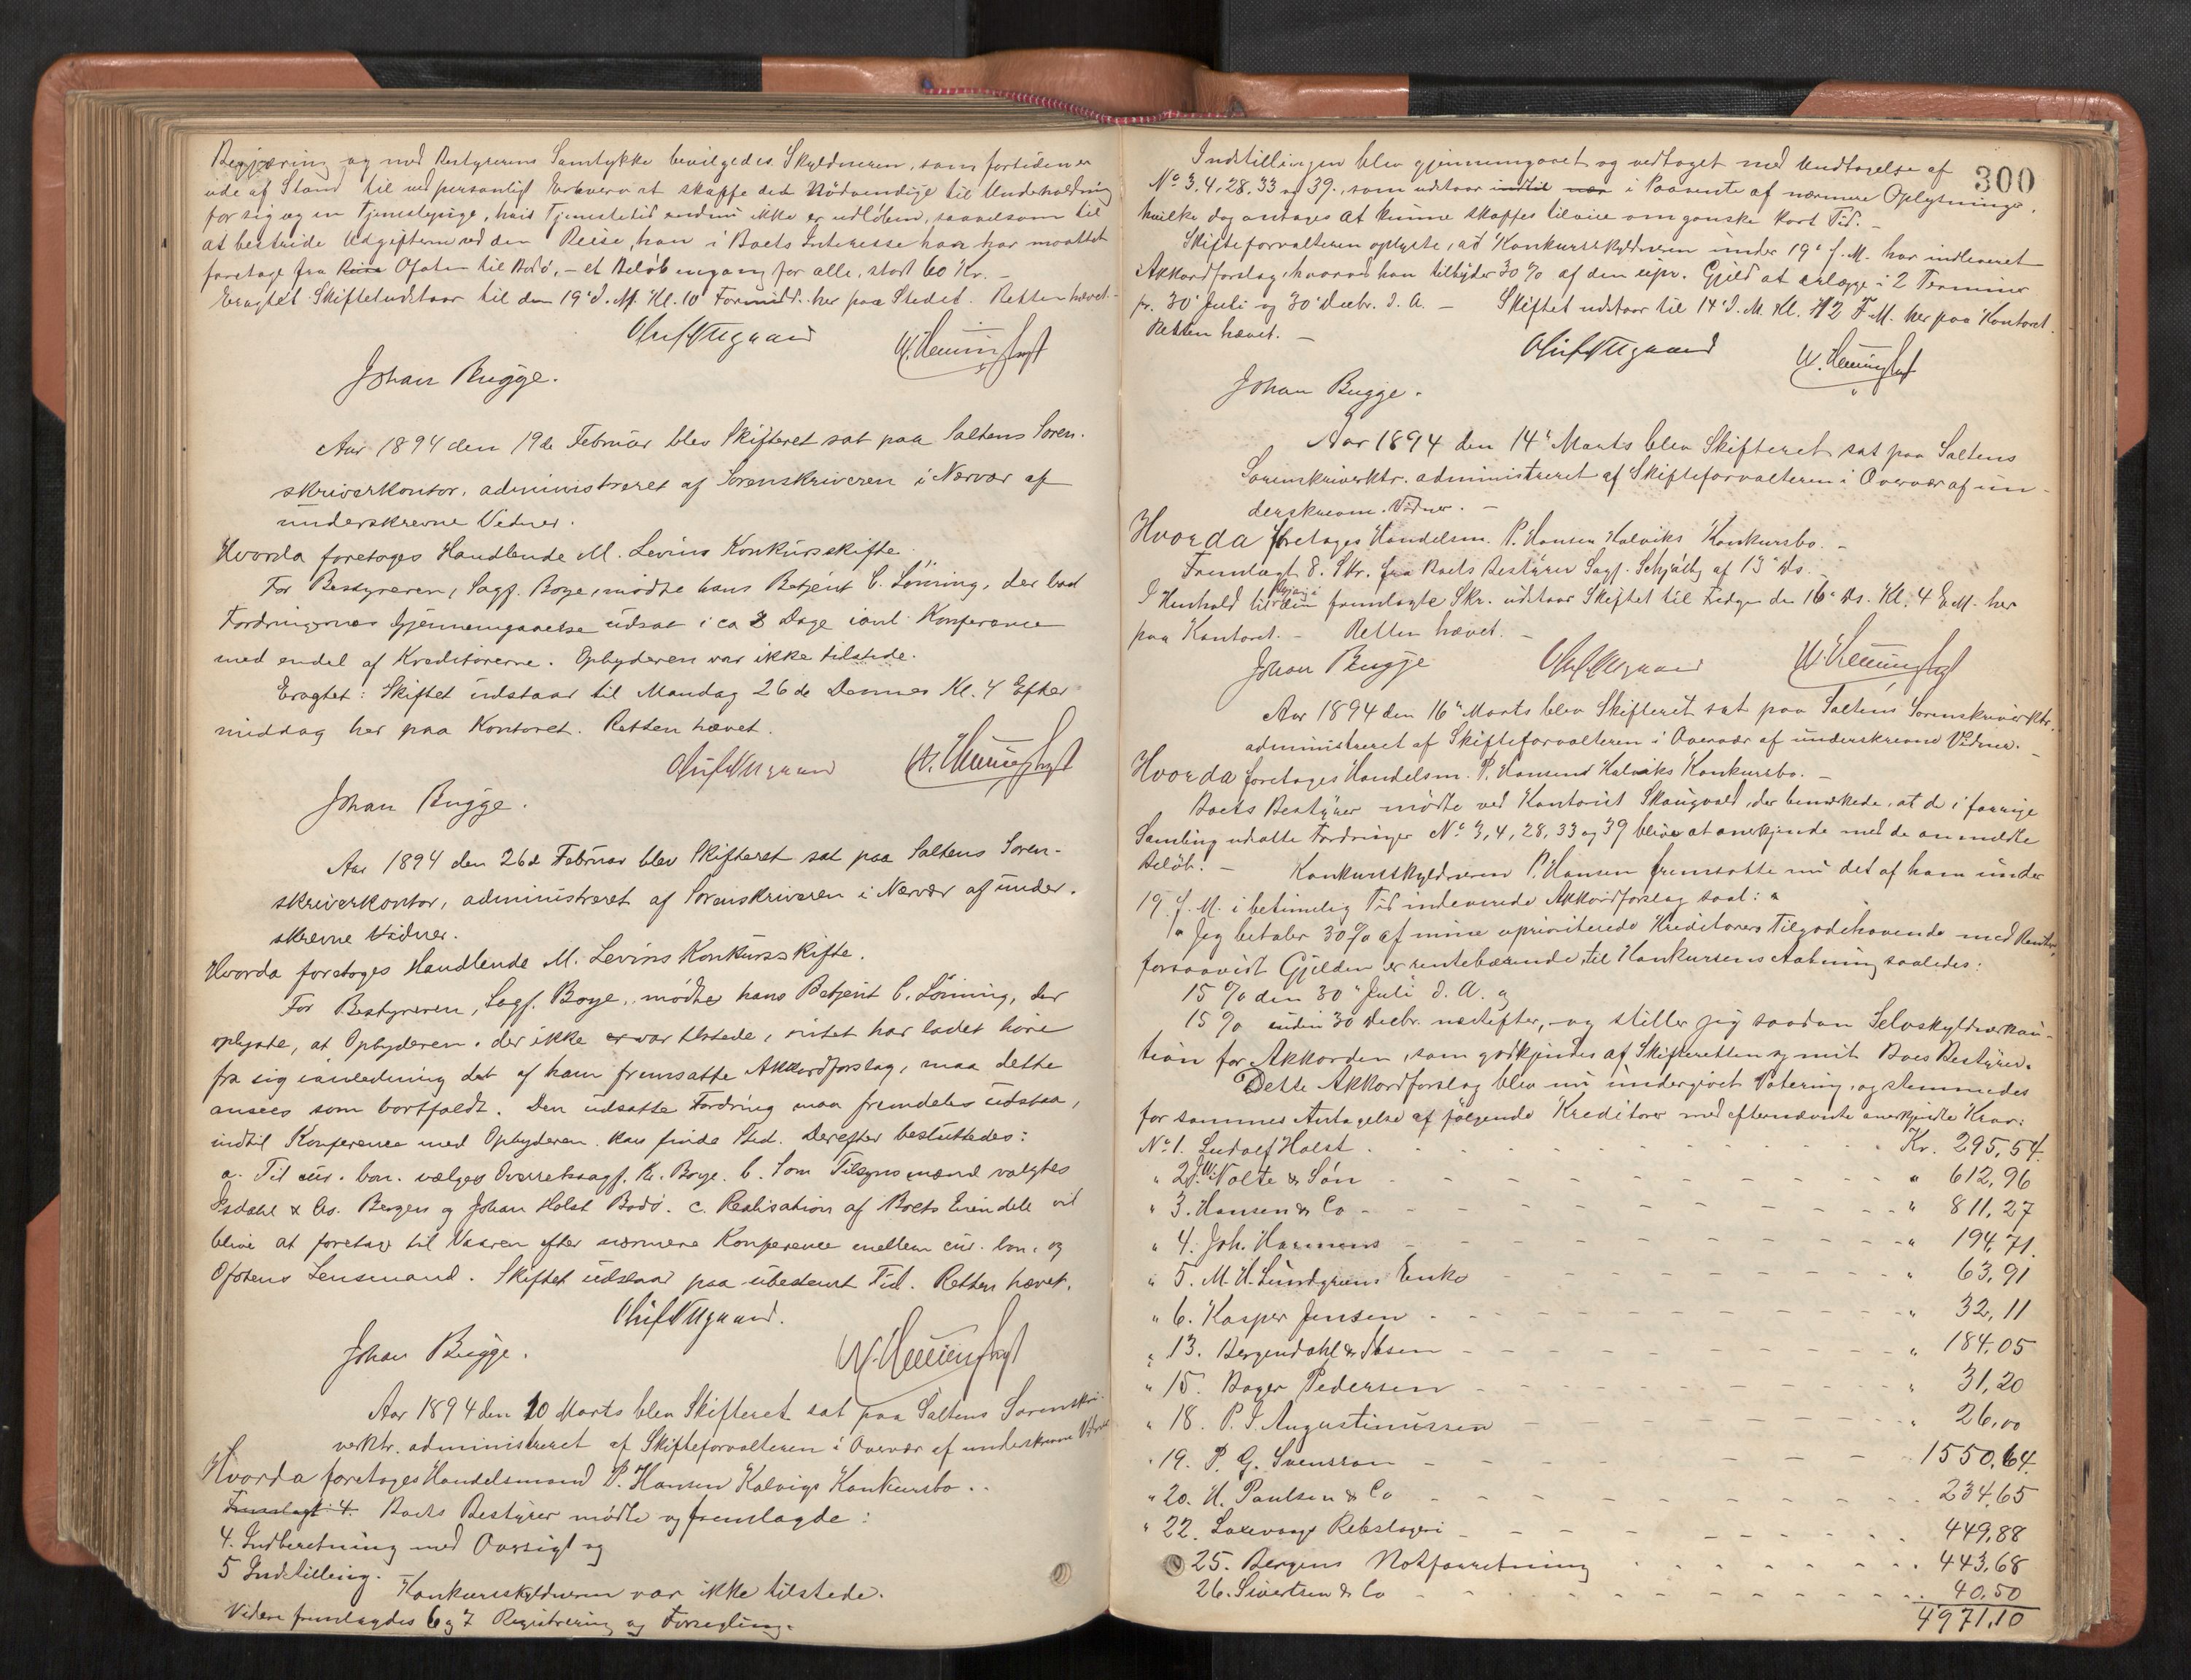 Begjæring og med Bestyrerens Samtykke bevilgedes Skyldneren, som fortiden er
ude af Stand til ved personligt Erhverv at skaffe det Nødvendige til Underholdning
for sig og en Tjenestepige, hvis Tjenestetid endnu ikke er udløben, saavelsom til
at bestride Udgifterne ved den Reise, han i Boets Interesse har maattet
foretage fra Ofoten til Bodø, – et Beløb engang for alle, stort 60 Kr. –
Eragtet: Skiftet udstaar til den 19d. M. Kl. 10 Formidd. her paa Stedet. Retten hævet.
Johan Bugge.
Aar 1894 den 19de Februar blev Skifteret sat paa Saltens Soren-
skriverkontor, administreret af Sorenskriveren i Nærvær af
underskrevne Vidner.
Hvorda foretoges Handlende M. Levins Konkursskifte.
For Bestyreren, Sagf. Boye, mødte hans Betjent C. Lönning, der bad
Fordringernes Gjennemgaaelse udsat i ca 8 Dage ianl. Konference
med endel af Kreditorerne. Opbyderen var ikke tilstede.
Eragtet: Skiftet udstaar til Mandag 26de Dennes Kl. 4 Efter
middag her paa Kontoret. Retten hævet.
Johan Bugge.
Aar 1894 den 26d Februar blev Skifteret sat paa Saltens Soren-
skriverkontor, administreret af Sorenskriveren i Nærvær af under-
skrevne Vidner.
Hvorda foretoges Handlende M. Levins Konkursskifte.
For Bestyreren, Sagf. Boye, mødte hans Betjent C. Lönning, der
oplyste, at Opbyderen, der ikke er var tilstede, intet har ladet høre
fra sig ianledning det af ham fremsatte Akkordforslag, maa dette
ansees som bortfaldt. Den udsatte Fordring maa fremdeles udstaa,
indtil Konference med Opbyderen kan finde Sted. Derefter besluttedes:
a. Til cur. bon. vælges Overretssagf. Boye. b. Som Tilsynsmænd valgtes
Isdahl & Co. Bergen og Johan Holst Bodø. c. Realisation af Boets Eiendele vil
blive at foretage til Vaaren efter nærmere Konference mellem cur. bon. og
Ofotens Lensmand. Skiftet udstaar paa ubestemt Tid. Retten hævet.
Johan Bugge.
Aar 1894 den 10 Marts blev Skifteret sat paa Saltens Sorenskri-
verktr. administreret af Skifteforvalteren i Overvær af underskrevne Vidner
Hvorda foretoges Handelsmand P. Hansen Kalvigs Konkursbo. –
Fremlagt: 4. Boets Bestyrer mødte og fremlagde:
4. Indberetning med Oversigt og
5 Indstilling. Konkursskyldneren var ikke tilstede.
Videre fremlagdes 6 og 7 Registrering og Forsegling.
300
Indstillingen blev gjennemgaaet og vedtaget med Undtagelse af
No 3, 4, 28, 33 og 39, som udstaar indtil i Paavente af nærmere Oplysninger,
hvilke dog antages at kunne skaffes tilveie om ganske kort Tid. –
Skifteforvalteren oplyste, at Konkursskyldneren under 19de f. M. har indleveret
Akkordforslag, hvorved han tilbyder 30 % af den upr. Gjeld at erlægge i 2 Terminer
pr. 30' Juli og 30' Decbr. d. A. – Skiftet udstaar til 14' d. M. Kl. 12 F.M. her paa Kontoret.
Retten hævet. –
Johan Bugge.
Aar 1894 den 14' Marts blev Skifteret sat paa Saltens
Sorenskriverktr. administreret af Skifteforvalteren i Overvær af un-
derskrevne Vidner. –
Hvorda foretoges Handelsm. P. Hansen Kalviks Konkursbo. –
Fremlagt 8. Skr. fra Boets Bestyrer Sagf. Schjølby af 13' ds.
I Henhold til den fremlagte Skr. udstaar Skiftet til Fredag den 16' ds. Kl. 4 E.M. her
paa Kontoret. – Retten hævet. –
Johan Bugge
Aar 1894 den 16' Marts blev Skifteret sat paa Saltens Sorenskriverktr.
administreret af Skifteforvalteren i Overvær af underskrevne Vidner. –
Hvorda foretoges Handelsm. P. Hansens Kalviks Konkursbo. –
Boets Bestyrer mødte ved Kontorist Skaugvold, der bemærkede, at de i forrige
Samling udsatte Fordringer No 3, 4, 28, 33 og 39 bliver at anerkjende med de anmeldte
Beløb. – Konkursskyldneren P. Hansen fremsatte nu det af ham under
19 f. M. i betimelig Tid indleverede Akkordforslag saal:
"Jeg betaler 30 % af mine uprioriterede Kreditorers Tilgodehavende med Renter,
forsaavidt Gjelden er rentebærende, til Konkursens Aabning saaledes:
15 % den 30' Juli d. A. og
15 % inden 30 Decbr. næstefter, og stiller jeg saadan Selvskyldnerkau-
tion for Akkorden, som godkjendes af Skifteretten og mit Boes Bestyrer.
Dette Akkordforslag blev nu undergivet Votering, og stemmedes
for sammes Antagelse af følgende Kreditorer med efternævnte anerkjendte Krav:
No 1. Ludolf Holst Kr. 295,54.
" 2 J.W. Nolte & Søn " 612,96
" 3. Hansen & Co " 811,27
" 4. Joh. Harmens " 194,71.
" 5. M. H. Lundgrens Enke " 63,91
" 6. Kasper Jensen " 32,11
" 13. Bergendahl & Ibsen " 184,05
" 15. Boger Pedersen " 31,20
" 18. P. I. Augustinussen " 26,00
" 19. P. G. Svensson 1550,64.
" 20. H. Paulsen & Co 234,65
" 22. Laxevaags Rebslageri 449,88
25. Bergens Notforretning 443,68
26. Sivertsen & Co 40,50
4971,10